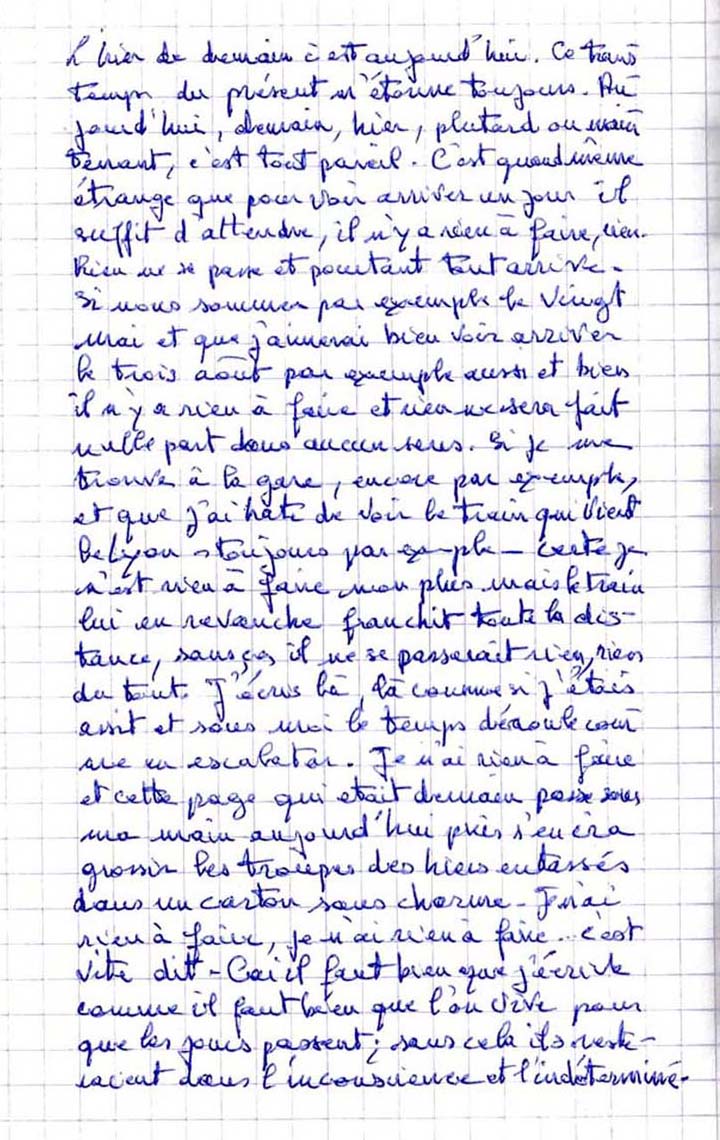 L'hier de demain c'est aujourd'hui. Ce trans
temps du présent m'étonne toujours. Au
jourd'hui, demain, hier, plutard ou main
tenant, c'est tout pareil. C'est quand même
étrange que pour voir arriver un jour il
suffit d'attendre, il n'y a rien à faire, rien.
Rien ne se passe et pourtant tout arrive.
Si nous sommes par exemple le vingt
mai et que j'aimerai bien voir arriver
le trois août par exemple aussi et bien
il n'y a rien à faire et rien ne sera fait
nulle part dans aucun sens. Si je me
trouve à la gare, encore par exemple,
et que j'ai hâte de voir le train qui vient
de Lyon - toujours par exemple - certe je
n'est rien à faire non plus mais le train
lui en revanche franchit toute la dis-
tance, sans ça il ne se passerait rien, rien
du tout. J'écris là, là comme si j'étais
assit et sous moi le temps déroule com
me un escalator. Je n'ai rien à faire
et cette page qui etait demain passe sous
ma main aujourd'hui puis s'en ira
grossir les troupes des hiers entassés
dans un carton sans charme. Je n'ai
rien à faire, je n'ai rien à faire.. c'est
vite dit - Car il faut bien que j'écrive
comme il faut bien que l'on vive pour
que les jours passent ; sans cela ils reste-
raient dans l'inconscience et l'indéterminé-